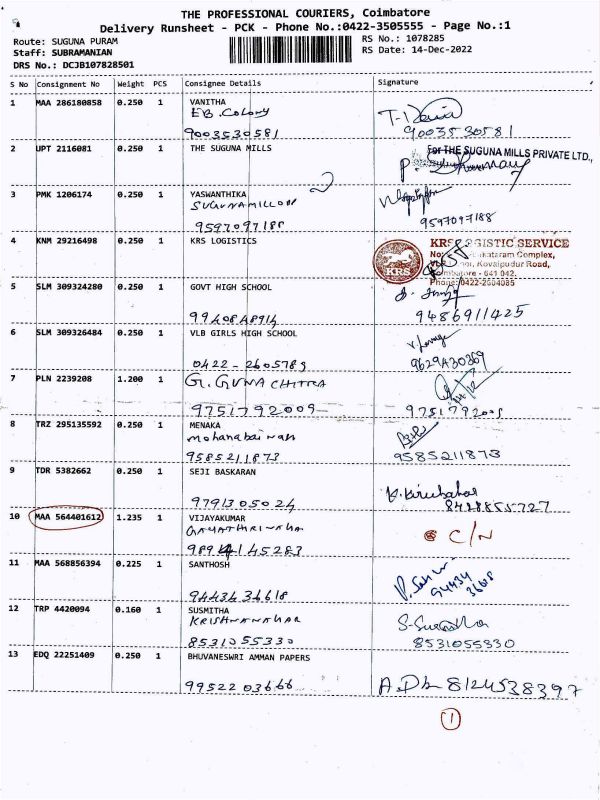 THE PROFESSIONAL COURIERS, Coimbatore
Delivery Runsheet - PCK - Phone No.:0422-3505555 - Page No.:1
Route: SUGUNA PURAM
RS No.: 1078285
Staff: SUBRAMANIAN
RS Date: 14-Dec-2022
DRS No.: DCJB107828501
S No Consignment No Weight PCS Consignee Details Signature
1 MAA 286180858 0.250 1 VANITHA
EB. Colony
9003530581 9003530581
2 UPT 2116081 0.250 1 THE SUGUNA MILLS
For THE SUGUNA MILLS PRIVATE LTD.,
3 PMK 1206174 0.250 1 YASWANTHIKA
9597097188 9597097188
4 KNM 29216498 0.250 1 KRS LOGISTICS
KRS LOGISTIC SERVICE
KRS
Complex,
Kovaipudur Road,
Coimbatore - 641 042.
Phone: 0422-2604085
5 SLM 309324280 0.250 1 GOVT HIGH SCHOOL
9940848914 9486911425
6 SLM 309326484 0.250 1 VLB GIRLS HIGH SCHOOL
0422-2605789 9629430369
7 PLN 2239208 1.200 1 G. GUNA CHITRA
9751792009 9751792009
8 TRZ 295135592 0.250 1 MENAKA
9585211873 9585211873
9 TDR 5382662 0.250 1 SEJI BASKARAN
9791305024 8428855727
10 MAA 564401612 1.235 1 VIJAYAKUMAR
C/N
11 MAA 568856394 0.225 1 SANTHOSH
9443436618 94434 36618
12 TRP 4420094 0.160 1 SUSMITHA
KRISHNANAGAR
8531055330 8531055330
13 EDQ 22251409 0.250 1 BHUVANESWRI AMMAN PAPERS
9952203666 8124538397
1